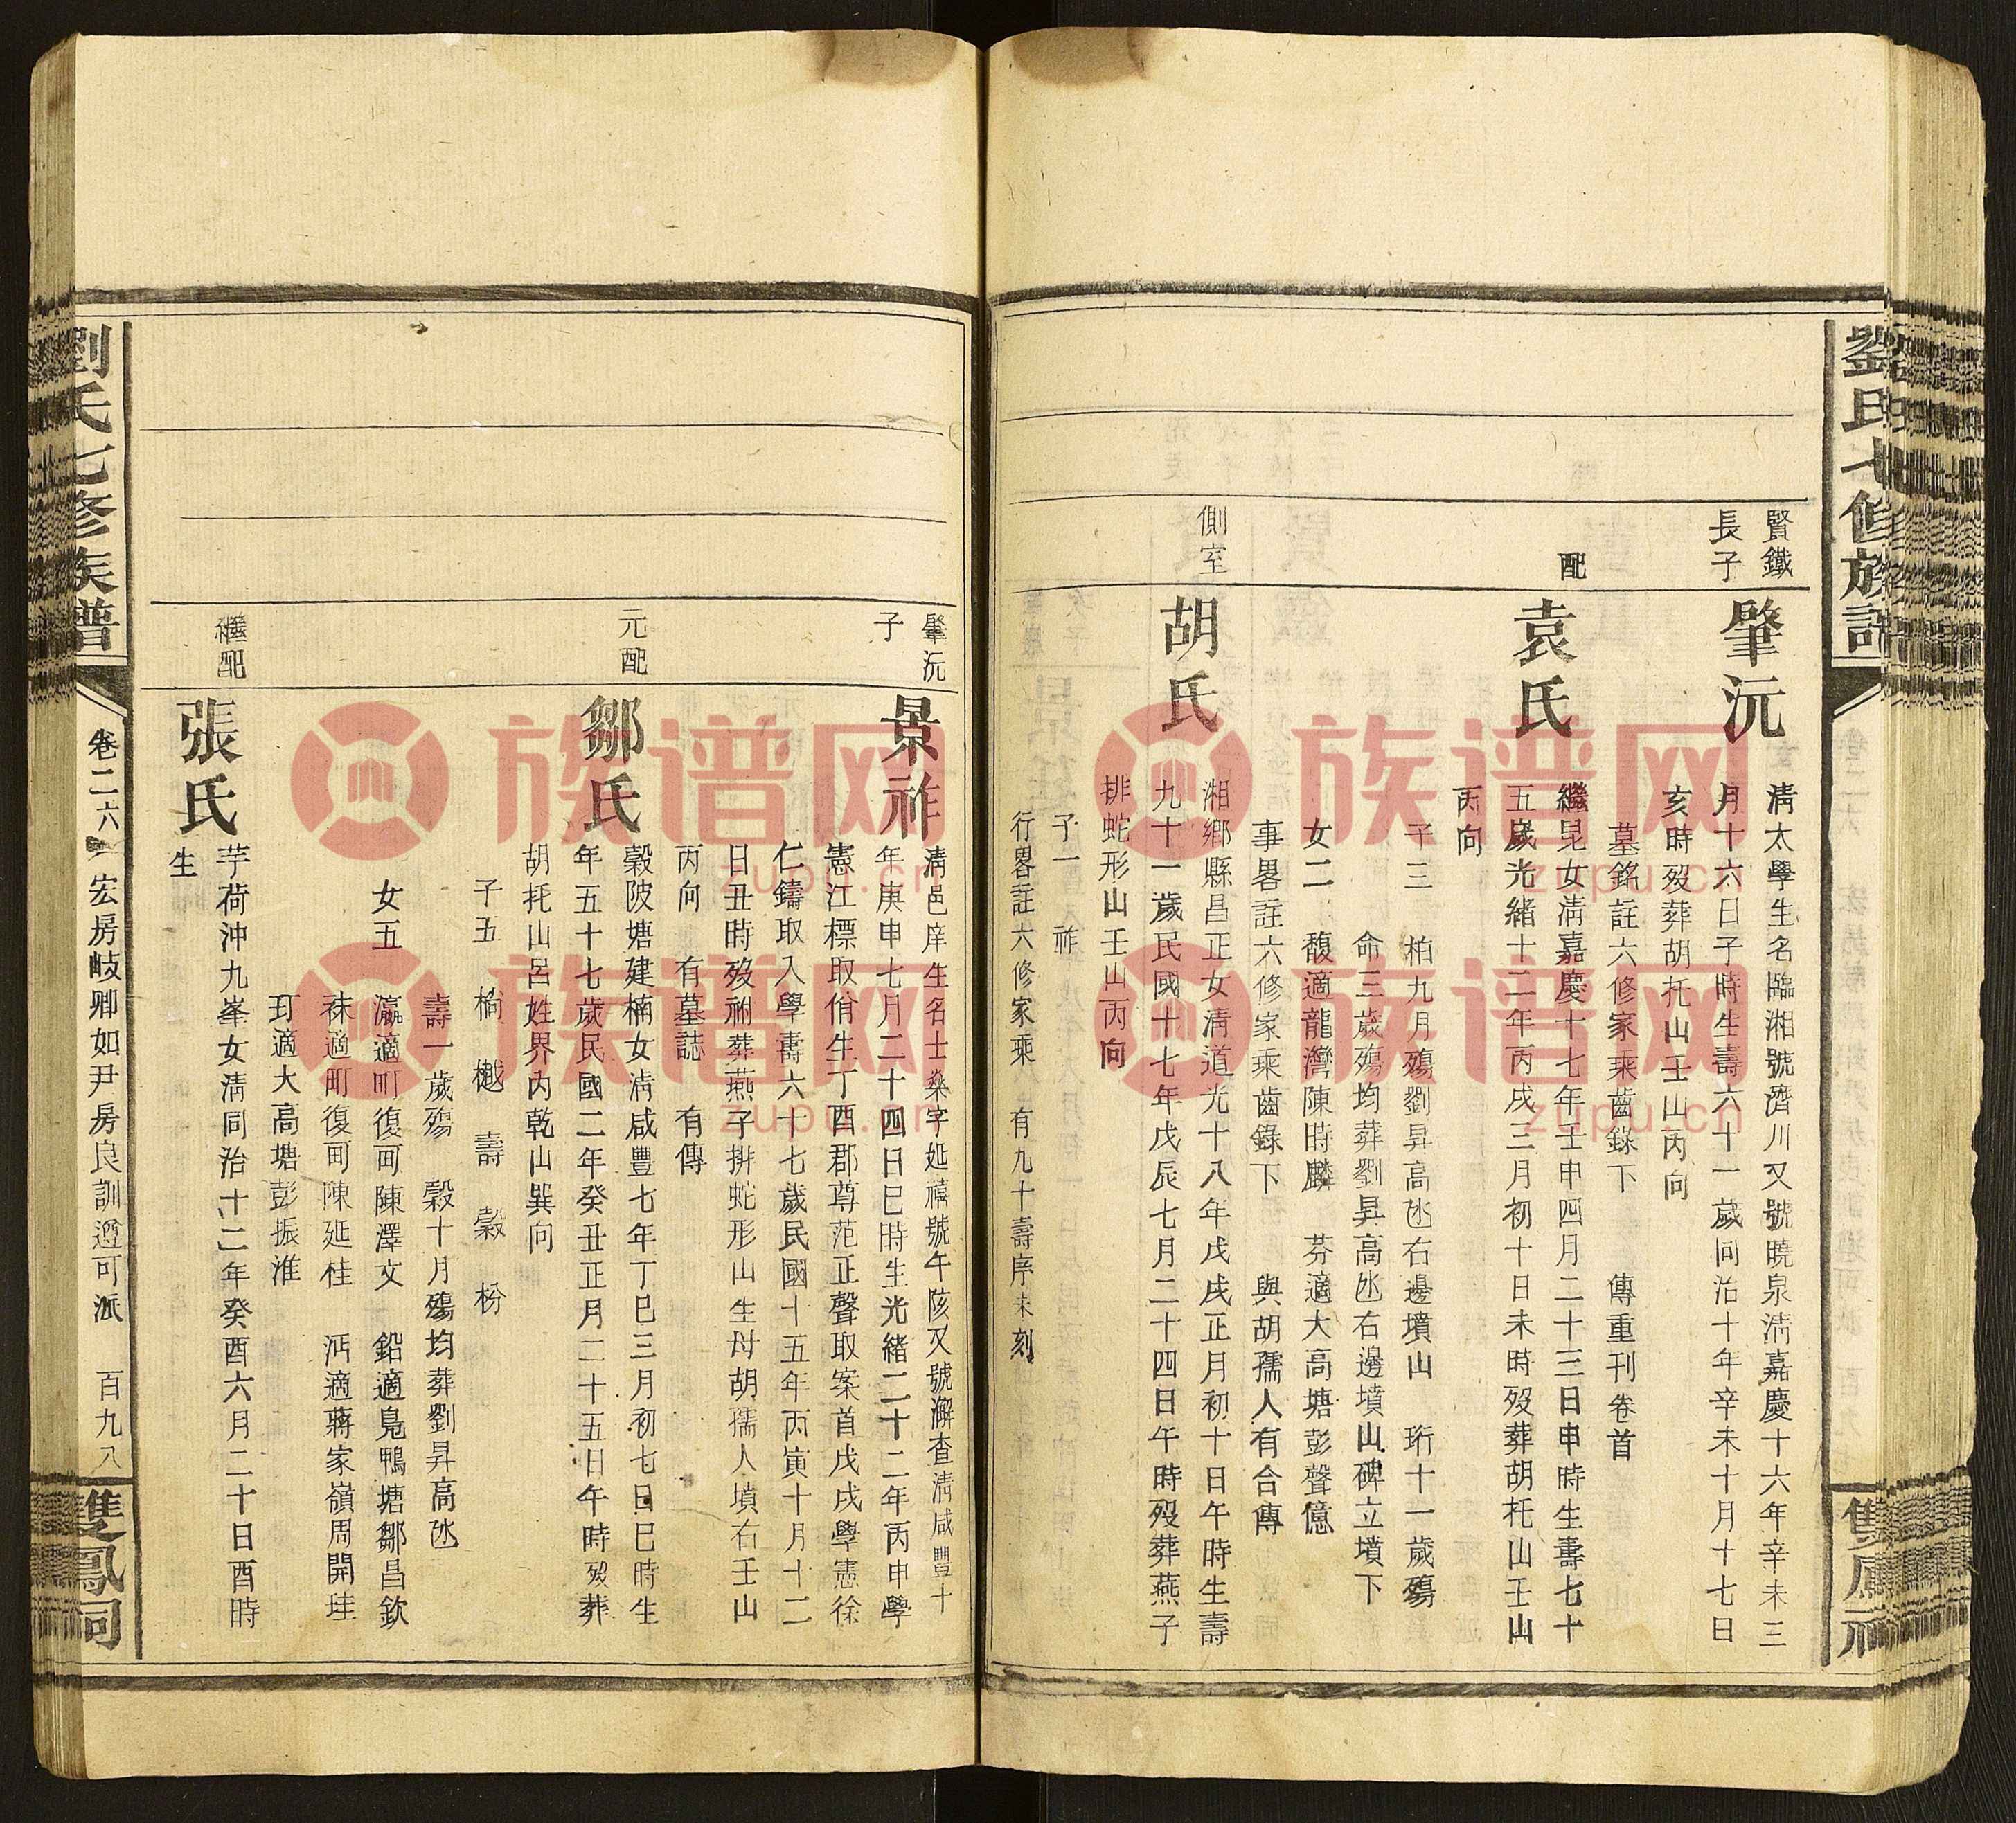 劉氏七修族譜
雙鳳祠
賢鐵
長子
肇沅
清太學生名臨湘號濟川又號曉泉清嘉慶十六年辛未三
月十六日子時生壽六十一歲同治十年辛未十月十七日
亥時歿葬胡托山壬山丙向
墓銘註六修家乘齒錄下 傳重刊卷首
配
袁氏
繼昆女清嘉慶十七年壬申四月二十三日申時生壽七十
五歲光緒十二年丙戌三月初十日未時歿葬胡托山壬山
丙向
子三 柏九月殤劉昇高氹右邊墳山 珩十一歲殤
命三歲殤均葬劉昇高氹右邊墳山碑立墳下
女二 馥適龍灣陳時麟 芬適大高塘彭聲億
事畧註六修家乘齒錄下 與胡孺人有合傳
側室
胡氏
湘鄉縣昌正女清道光十八年戊戌正月初十日午時生壽
九十一歲民國十七年戊辰七月二十四日午時歿葬燕子
排蛇形山壬山丙向
子一 祚
行畧註六修家乘 有九十壽序未刻
肇沅
子
景祚
清邑庠生名士燊字延禧號午陔又號澥查清咸豐十
年庚申七月二十四日巳時生光緒二十二年丙申學
憲江標取佾生丁酉郡尊范正聲取案首戊戌學憲徐
仁鑄取入學壽六十七歲民國十五年丙寅十月十二
日丑時歿祔葬燕子排蛇形山生母胡孺人墳右壬山
丙向 有墓誌 有傳
元配
鄒氏
穀陂塘建楠女清咸豐七年丁巳三月初七日巳時生
年五十七歲民國二年癸丑正月二十五日午時歿葬
胡托山呂姓界內乾山巽向
子五 樾 壽 穀 枌
壽一歲殤 穀十月殤均葬劉昇高氹
女五 瀛適町復町陳澤文 鉛適鳧鴨塘鄒昌欽
袜適町復町陳延桂 沔適蔣家嶺周開珪
玨適大高塘彭振淮
繼配
張氏
芋荷沖九峯女清同治十二年癸酉六月二十日酉時
生
劉氏七修族譜
卷二六 宏房岐卿如尹房良訓遵可派 百九八
雙鳳祠
族谱网
zupu.cn
族谱网
zupu.cn
族谱网
zupu.cn
族谱网
zupu.cn